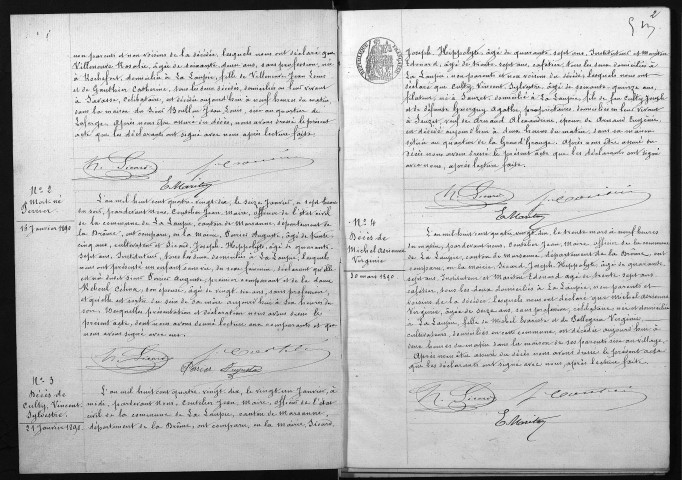 non parents et non voisins de la décédée, lesquels nous ont déclaré que
Villeneuve Rosalie, âgée de soixante douze ans, sans profession, née
à Rochefort, domiciliée à La Laupie, fille de Villeneuve Jean Louis
et de Gauthier Catherine, tous les deux décédés, domiciliés en leur vivant
à Savasse, célibataire, est décédée aujourd'hui à sept heures du matin,
dans la maison du Sieur Jean Louis, sise au quartier de
Laferge. Après nous être assuré du décès, nous avons dressé le présent
acte que les déclarants ont signé avec nous après lecture faite.
H. Sicard
E. Martin
N° 2
Mort né
Perrier
16 Janvier 1890
L'an mil huit cent quatre vingt dix, le seize Janvier, à sept heures
du soir, pardevant Nous, Coutelier Jean, Maire, officier de l'état civil
de la commune de La Laupie, canton de Marsanne, département de
la Drôme, ont comparu, en la mairie, Auguste, âgé de trente
cinq ans, cultivateur et Sicard, Joseph, Hippolyte, âgé de quarante
sept ans, Instituteur, tous les deux domiciliés à La Laupie, lesquels
nous ont présenté un enfant sans vie, du sexe féminin, déclarant qu'elle
est née dudit Sieur Auguste, premier comparant et de la dame
Reboul son épouse, âgée de vingt six ans, sans profession,
et qu'elle est sortie du sein de sa mère aujourd'hui à six heures du
soir. Desquelles présentation et déclaration nous avons dressé le
présent acte, dont nous avons donné lecture aux comparants et que
nous avons signé avec eux.
H. Sicard
Auguste
N° 3
Décès de
Culty, Vincent
Sylvestre
21 Janvier 1890
L'an mil huit cent quatre vingt dix, le vingt un Janvier, à
midi, pardevant Nous, Coutelier Jean, Maire, officier de l'état
civil de la commune de La Laupie, canton de Marsanne,
département de la Drôme, ont comparu, en la mairie, Sicard,
2
Joseph, Hippolyte, âgé de quarante sept ans, Instituteur et Martin
Edouard, âgé de trente sept ans, cafetier, tous les deux domiciliés à
La Laupie, non parents et non voisins du décédé, lesquels nous ont
déclaré que Culty, Vincent, Sylvestre, âgé de soixante quinze ans,
filateur, né à Sauzet, domicilié à La Laupie, fils de feu Culty Joseph
et de défunte Agathe, propriétaires, domiciliés en leur vivant
à Sauzet, veuf de Arnaud Alexandrine, époux de Arnaud Eugénie,
est décédé aujourd'hui à deux heures du matin, dans sa maison
située au quartier de la Grand'Grange. Après nous être assuré du
décès nous avons dressé le présent acte que les déclarants ont signé avec
nous, après lecture faite.
H. Sicard
E. Martin
N° 4
Décès de
Michel Adrienne
Virginie
30 mars 1890
L'an mil huit cent quatre vingt dix, le trente mars à neuf heures
du matin, pardevant nous, Coutelier, Jean, Maire officier de la commune
de La Laupie, canton de Marsanne, département de la Drôme, ont
comparu, en la mairie, Sicard, Joseph, Hippolyte, âgé de quarante
sept ans, Instituteur et Martin Edouard âgé de trente sept ans,
cafetier, tous les deux domiciliés à La Laupie, non parents et
voisins de la décédée, lesquels nous ont déclaré que Michel Adrienne
Virginie, âgée de seize ans, sans profession, célibataire née et domiciliée
à La Laupie, fille de Michel et de Virginie,
cultivateurs, domiciliés en cette commune, est décédée aujourd'hui à
deux heures du matin dans la maison de ses parents sise au village.
Après nous être assuré du décès nous avons dressé le présent acte
que les déclarants ont signé avec nous, après lecture faite.
H. Sicard
E. Martin